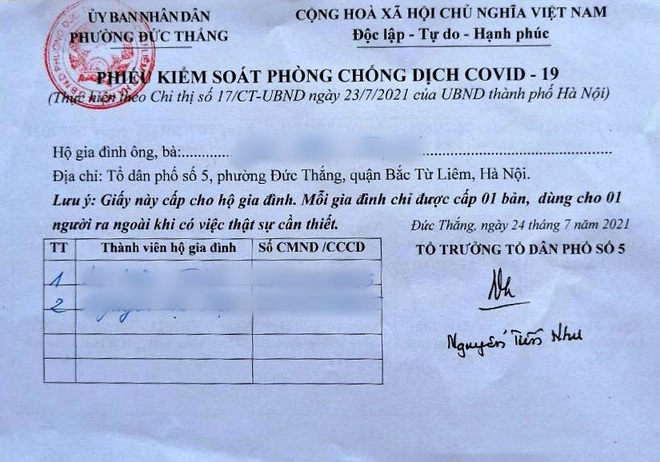 ỦY BAN NHÂN DÂN
PHƯỜNG ĐỨC THẮNG
CỘNG HOÀ XÃ HỘI CHỦ NGHĨA VIỆT NAM
Độc lập - Tự do - Hạnh phúc
PHIẾU KIỂM SOÁT PHÒNG CHỐNG DỊCH COVID - 19
(Thực hiện theo Chỉ thị số 17/CT-UBND ngày 23/7/2021 của UBND thành phố Hà Nội)
Hộ gia đình ông, bà:
Địa chỉ: Tổ dân phố số 5, phường Đức Thắng, quận Bắc Từ Liêm, Hà Nội.
Lưu ý: Giấy này cấp cho hộ gia đình. Mỗi gia đình chỉ được cấp 01 bản, dùng cho 01
người ra ngoài khi có việc thật sự cần thiết.
Đức Thắng, ngày 24 tháng 7 năm 2021
TỔ TRƯỞNG TỔ DÂN PHỐ SỐ 5
TT Thành viên hộ gia đình Số CMND /CCCD
1
2
Nguyễn Tiến Như